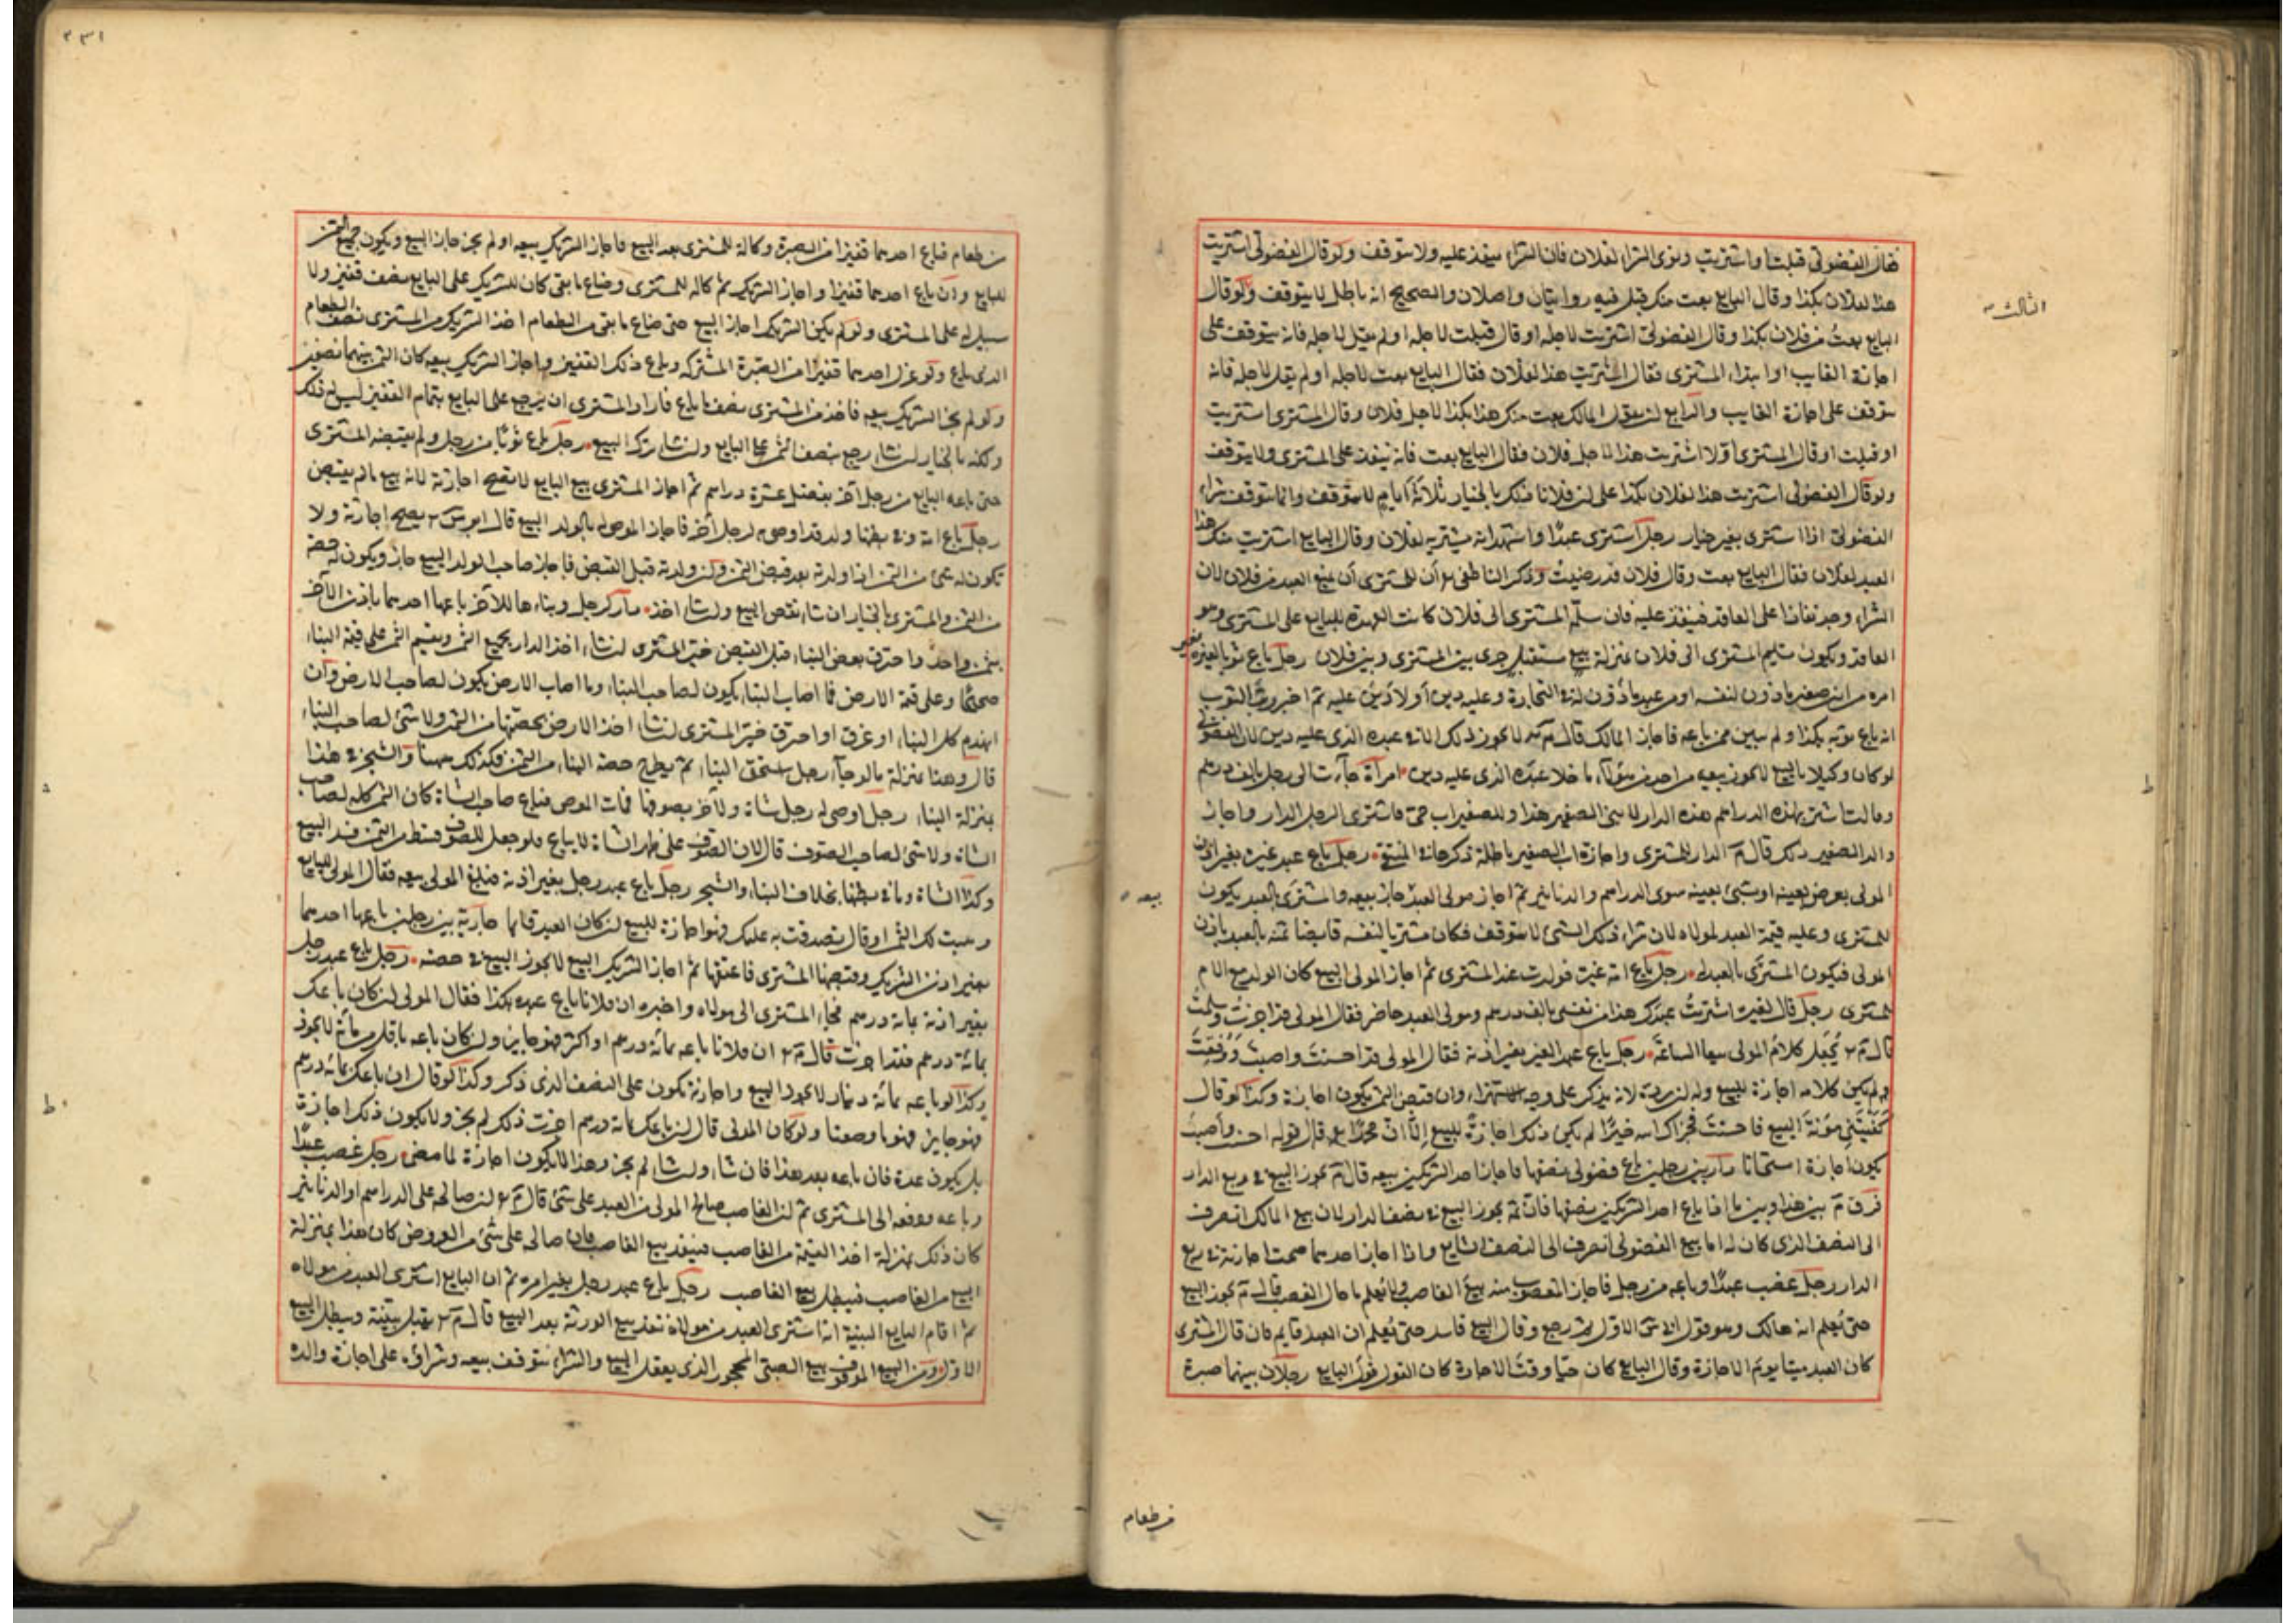 الثالث
فقال الفضولي قبلت او اشتريت ونوى الشراء لفلان فان الشراء ينفذ عليه ولا يتوقف ولو قال الفضولي اشتريت
هذا لفلان بكذا وقال البايع بعت منك قبل فيه روايتان واصلان والصحيح انه باطل لا يتوقف ولو قال
البايع بعتُ من فلان بكذا وقال الفضولي اشتريت لاجله او قال قبلت لاجله او لم يقل لاجله فانه يتوقف على
اجازة الغايب او ابتداء المشترى فقال اشتريت هذا لفلان فقال البايع بعت لاجله او لم يقل لاجله فانه
يتوقف على اجازة الغايب والرابع ان يقول المالك بعت منك هذا بكذا لاجل فلان وقال المشترى اشتريت
او قبلت او قال المشترى اولا اشتريت هذا لاجل فلان فقال البايع بعت فانه ينفذ على المشترى ولا يتوقف
ولو قال الفضولى اشتريت هذا لفلان بكذا على ان فلانا بالخيار ثلاثة ايام لا يتوقف وانما يتوقف شراء
الفضولي اذا اشترى بغير خيار رجل اشترى عبدًا واشهد انه يشتريه لفلان وقال البايع اشتريت منك هذا
العبد لفلان فقال البايع بعت وقال فلان قد رضيت وذكر الناطفى ان للمشترى ان يمنع العبد من فلان لان
الشراء وجد نفاذا على العاقد فينفذ عليه فان سلّم المشترى الى فلان كانت العهدة للبايع على المشترى وهو
العاقد ويكون تسليم المشترى الى فلان بمنزلة بيع مستقبل جرى بين المشترى وبين فلان رجل باع ثوبا لغيره بغير
امره من ابن صغير ماذون لنفسه او من عبد ماذون له في التجارة وعليه دين او لا دين عليه ثم اخبر رب الثوب
انه باع ثوبه بكذا ولم يبين ممن باعه فاجاز المالك قال م لا يجوز ذلك الا في عبده الذى عليه دين لان الفضولى
لو كان وكيلا بالبيع لا يجوز بيعه من احد من هؤلاء ما خلا عبده الذى عليه دين امرأة جاءت الى رجل بالف درهم
وقالت اشتر بهذه الدراهم هذه الدار لابني الصغير هذا وللصغير اب حي فاشترى الرجل الدار واجاز
والد الصغير ذلك قال م الدار للمشترى واجازة اب الصغير باطلة رجل باع عبد غيره بغير اذن
المولى بعرض بعينه او بشئ بعينه سوى الدراهم والدنانير ثم اجاز مولى العبد جاز بيعه والمشترى بالعبد يكون
بيعه
للمشترى وعليه قيمة العبد لمولاه لان شراء ذلك الشئ لا يتوقف فكان مشتريا لنفسه قابضا ثمنه بالعبد باذن
المولى فيكون المشترى بالعبد له رجل باع امة غيره فولدت عند المشترى ثم اجاز المولى البيع كان الولد مع الام
للمشترى رجل قال لغيره اشتريتُ عبدك هذا من نفسى بالف درهم ومولى العبد حاضر فقال المولى قد اجزتُ وسلمتُ
قال م يُجعل كلام المولى بيعا الساعة رجل باع عبد الغير بغير اذنه فقال المولى قد احسنت واصبت ووفقت
لم يكن كلامه اجازة للبيع وله ان يرده لانه يذكر على وجه الاستهزاء وان قبض الثمن يكون اجازة وكذا لو قال
كفيتنى مؤنة البيع فاحسنت فجزاك الله خيرًا لم يكن ذلك اجازةً للبيع الا ان محمدًا قال قوله احسنت واصبت
يكون اجازة استحسانا دار بين رجلين باع فضولى نصفها فاجاز احد الشريكين بيعه قال م يجوز البيع في ربع الدار
فرق م بين هذا وبين ما اذا باع احد الشريكين نصفها فان ثمه يجوز البيع في نصف الدار لان بيع المالك انصرف
الى النصف الذى كان له اما بيع الفضولى انصرف الى النصف الشايع واذا اجاز احدهما صحت اجازته في ربع
الدار رجل غصب عبدًا وباعه من رجل فاجاز المغصوب منه بيع الغاصب ولا يُعلم ما حال الغصب قال م يجوز البيع
حتى يُعلم انه هالك وهو قول ابى س الاول ثم رجع وقال البيع فاسد حتى يُعلم ان العبد قايم فان قال المشترى
كان العبد ميتا يوم الاجازة وقال البايع كان حيّا وقت الاجازة كان القول قول البايع رجلان بينهما صبرة
من طعام
٢٣١
من طعام فباع احدهما قفيزا من الصبرة وكاله للمشترى بعد البيع فاجاز الشريك بيعه او لم يجز جاز البيع ويكون جميع الثمن
للبايع وان باع احدهما قفيزا واجاز الشريك ثم كاله للمشترى وضاع ما بقى كان للشريك على البايع نصف قفيز ولا
سبيل له على المشترى ولو لم يكن الشريك اجاز البيع حتى ضاع ما بقى من الطعام اخذ الشريك من المشترى نصف الطعام
الذى باع ولو عزل احدهما قفيزا من الصبرة المشتركة وباع ذلك القفيز واجاز الشريك بيعه كان الثمن بينهما نصفين
ولو لم يجز الشريك بيعه فاخذ من المشترى نصف ما باع فاراد المشترى ان يرجع على البايع بتمام القفيز ليس له ذلك
ولكنه بالخيار ان شاء رجع بنصف الثمن على البايع وان شاء ترك البيع رجل باع ثوبًا من رجل ولم يقبضه المشترى
حتى باعه البايع من رجل آخر بفضل عشرة دراهم ثم اجاز المشترى بيع البايع لا تصح اجازته لانه بيع ما لم يقبض
رجل باع امة وفي بطنها ولد قد اوصى به لرجل آخر فاجاز الموصى له بالولد البيع قال ابو س يصح اجازته ولا
يكون له شئ من الثمن اذا ولدته بعد قبض الثمن ولو ولدته قبل القبض فاجاز صاحب الولد البيع جاز ويكون له حصة
من الثمن والمشترى بالخيار ان شاء نقض البيع وان شاء اخذ دار لرجل وبناءها للآخر باعها احدهما باذن الآخر
بثمن واحد واحترق بعض البناء قبل القبض خير المشترى ان شاء اخذ الدار بجميع الثمن ويقسم الثمن على قيمة البناء
صحيحًا وعلى قيمة الارض فما اصاب البناء يكون لصاحب البناء وما اصاب الارض يكون لصاحب الارض وان
انهدم كل البناء او غرق او احترق خير المشترى ان شاء اخذ الارض بحصتها من الثمن ولا شئ لصاحب البناء
قال وهذا بمنزلة ما لو جاء رجل استحق البناء ثم يطرح حصة البناء من الثمن فكذلك ههنا والشجر في هذا
بمنزلة البناء رجل اوصى لرجل شاة ولآخر بصوفها فمات الموصى فباع صاحب الشاة كان الثمن كله لصاحب
الشاة ولا شئ لصاحب الصوف قال لان الصوف على ظهر الشاة لا يباع فلو جعل للصوف قسط من الثمن فسد البيع
وكذا الشاة وما في بطنها بخلاف البناء والشجر رجل باع عبد رجل بغير اذنه فبلغ المولى بيعه فقال المولى للبايع
وهبت لك الثمن او قال تصدقت به عليك فهو اجازة للبيع ان كان العبد قائما جارية بين رجلين باعها احدهما
بغير اذن الشريك وقبضها المشترى فاعتقها ثم اجاز الشريك البيع لا يجوز البيع في حصته رجل باع عبد رجل
بغير اذنه بمائة درهم فجاء المشترى الى مولاه واخبره ان فلانا باع عبده بكذا فقال المولى ان كان باعك
بمائة درهم فقد اجزت قال م ان فلانا باعه بمائة درهم او اكثر فهو جايز وان كان باعه باقل من مائة لا يجوز
وكذا لو باعه بمائة دينار لا يجوز البيع واجازته تكون على النصف الذى ذكر وكذا لو قال ان باعك بمائة درهم
فهو جايز فهو ما وصفنا ولو كان المولى قال ان باعك بمائة درهم اجزت ذلك لم يجز ولا يكون ذلك اجازة
بل يكون عدة فان باعه بعد هذا فان شاء وان شاء لم يجز وهذا لا يكون اجازة لما مضى رجل غصب عبدًا
وباعه ودفعه الى المشترى ثم ان الغاصب صالح المولى من العبد على شئ قال م ان صالحه على الدراهم او الدنانير
كان ذلك بمنزلة اخذ القيمة من الغاصب فينفذ بيع الغاصب فان صالحه على شئ من العروض كان هذا بمنزلة
البيع من الغاصب فيبطل بيع الغاصب رجل باع عبد رجل بغير امره ثم ان البايع اشترى العبد من مولاه
ثم اقام البايع البينة انه اشترى العبد من مولاه بعد البيع قال م يقبل بينته ويبطل البيع
الاول ومن البيع الموقوف بيع الصبى المحجور الذى يعقل البيع والشراء يتوقف بيعه وشراؤه على اجازة والده